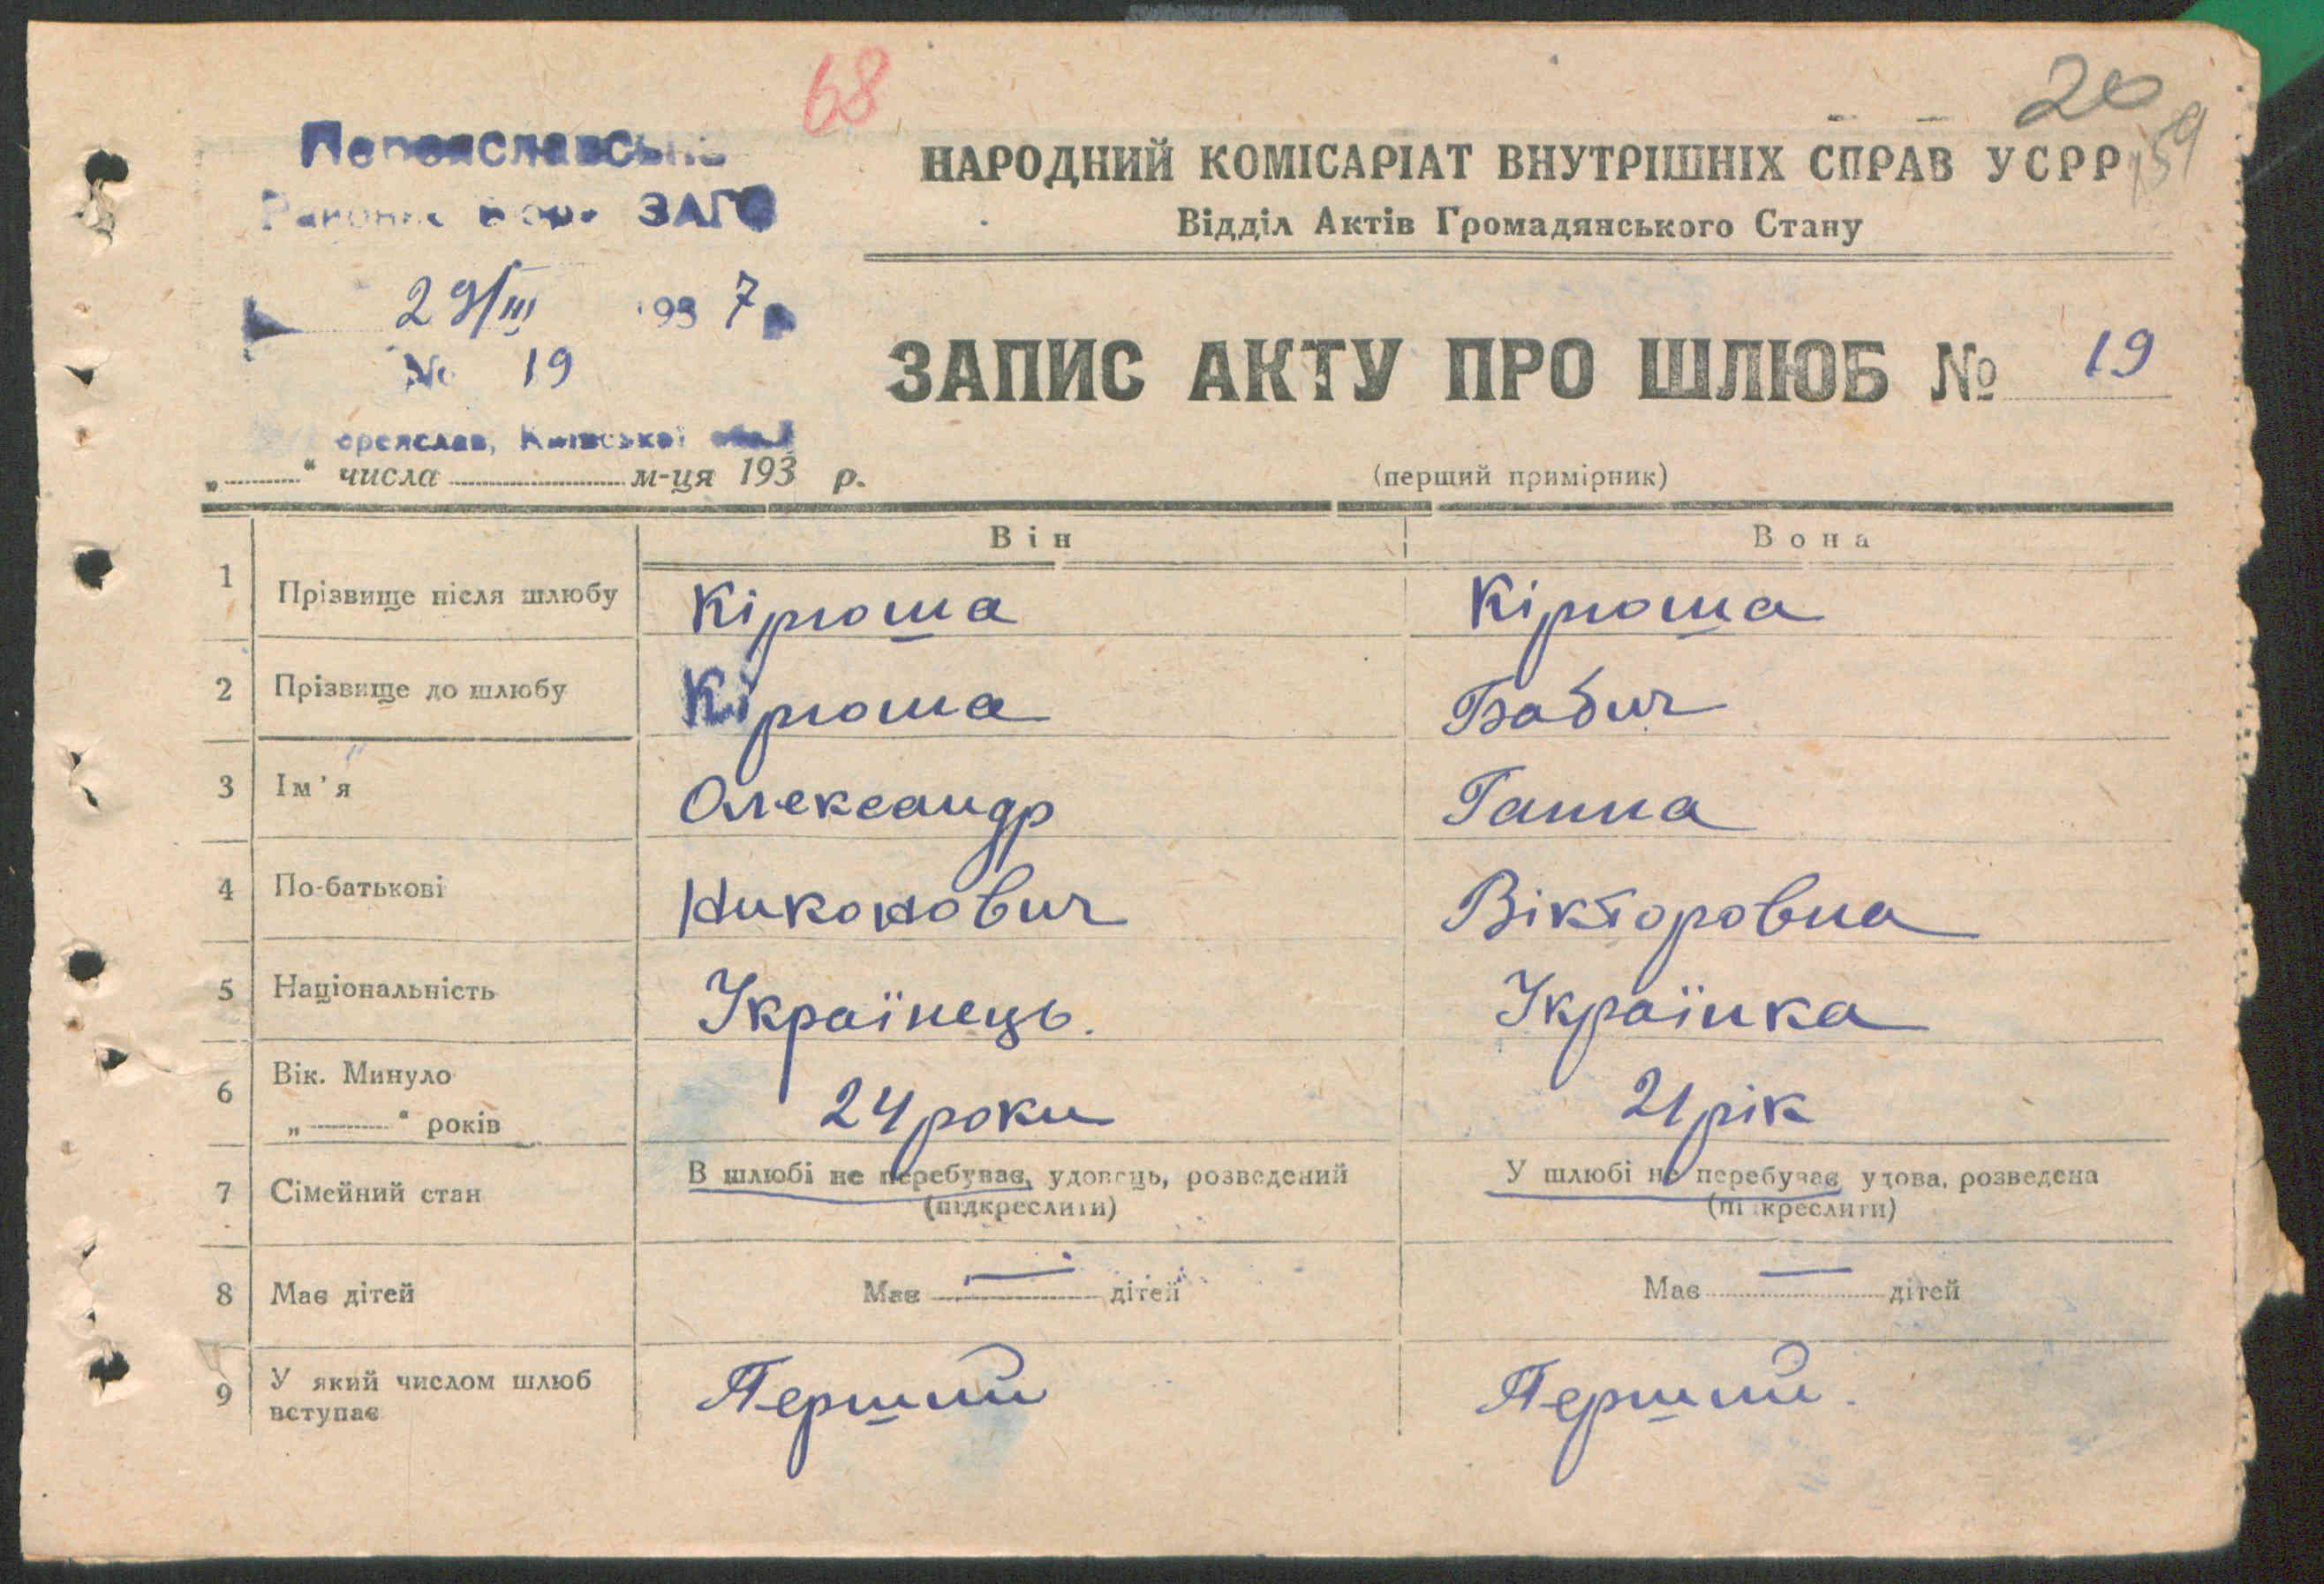 68
20
159
Переяславське
Районне Бюро ЗАГС
НАРОДНИЙ КОМІСАРІАТ ВНУТРІШНІХ СПРАВ УСРР
Відділ Актів Громадянського Стану
29/III 1937 р
№ 19
ЗАПИС АКТУ ПРО ШЛЮБ № 19
ереяслав, Київської обл
„ “ числа м-ця 193 р.
(перщий примірник)
Він Вона
1 Прізвище після шлюбу Кірюша Кірюша
2 Прізвище до шлюбу Кірюша Бабич
3 Ім'я Олександр Ганна
4 По-батькові Никонович Вікторовна
5 Національність Українець. Українка
6 Вік. Минуло
„ “ років 24 роки 21 рік
7 Сімейний стан В шлюбі не перебував, удовець, розведений У шлюбі не перебував, удова, розведена
(підкреслити) (підкреслити)
8 Має дітей Має — дітей Має — дітей
9 У який числом шлюб
вступає Перший Перший.